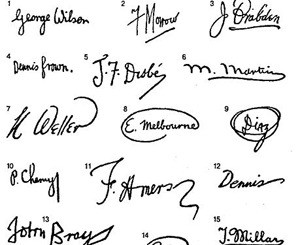 1 George Wilson
2 F Morrow
3 J.
4 Dennis Brown.
5 J. F.
6 M. Martin
7 Weller
8 E. Melbourne
9 Diaz
10 P. Cherny
11 F. Hmers
12 Dennis
13 John Bray
14
15 J. Millar